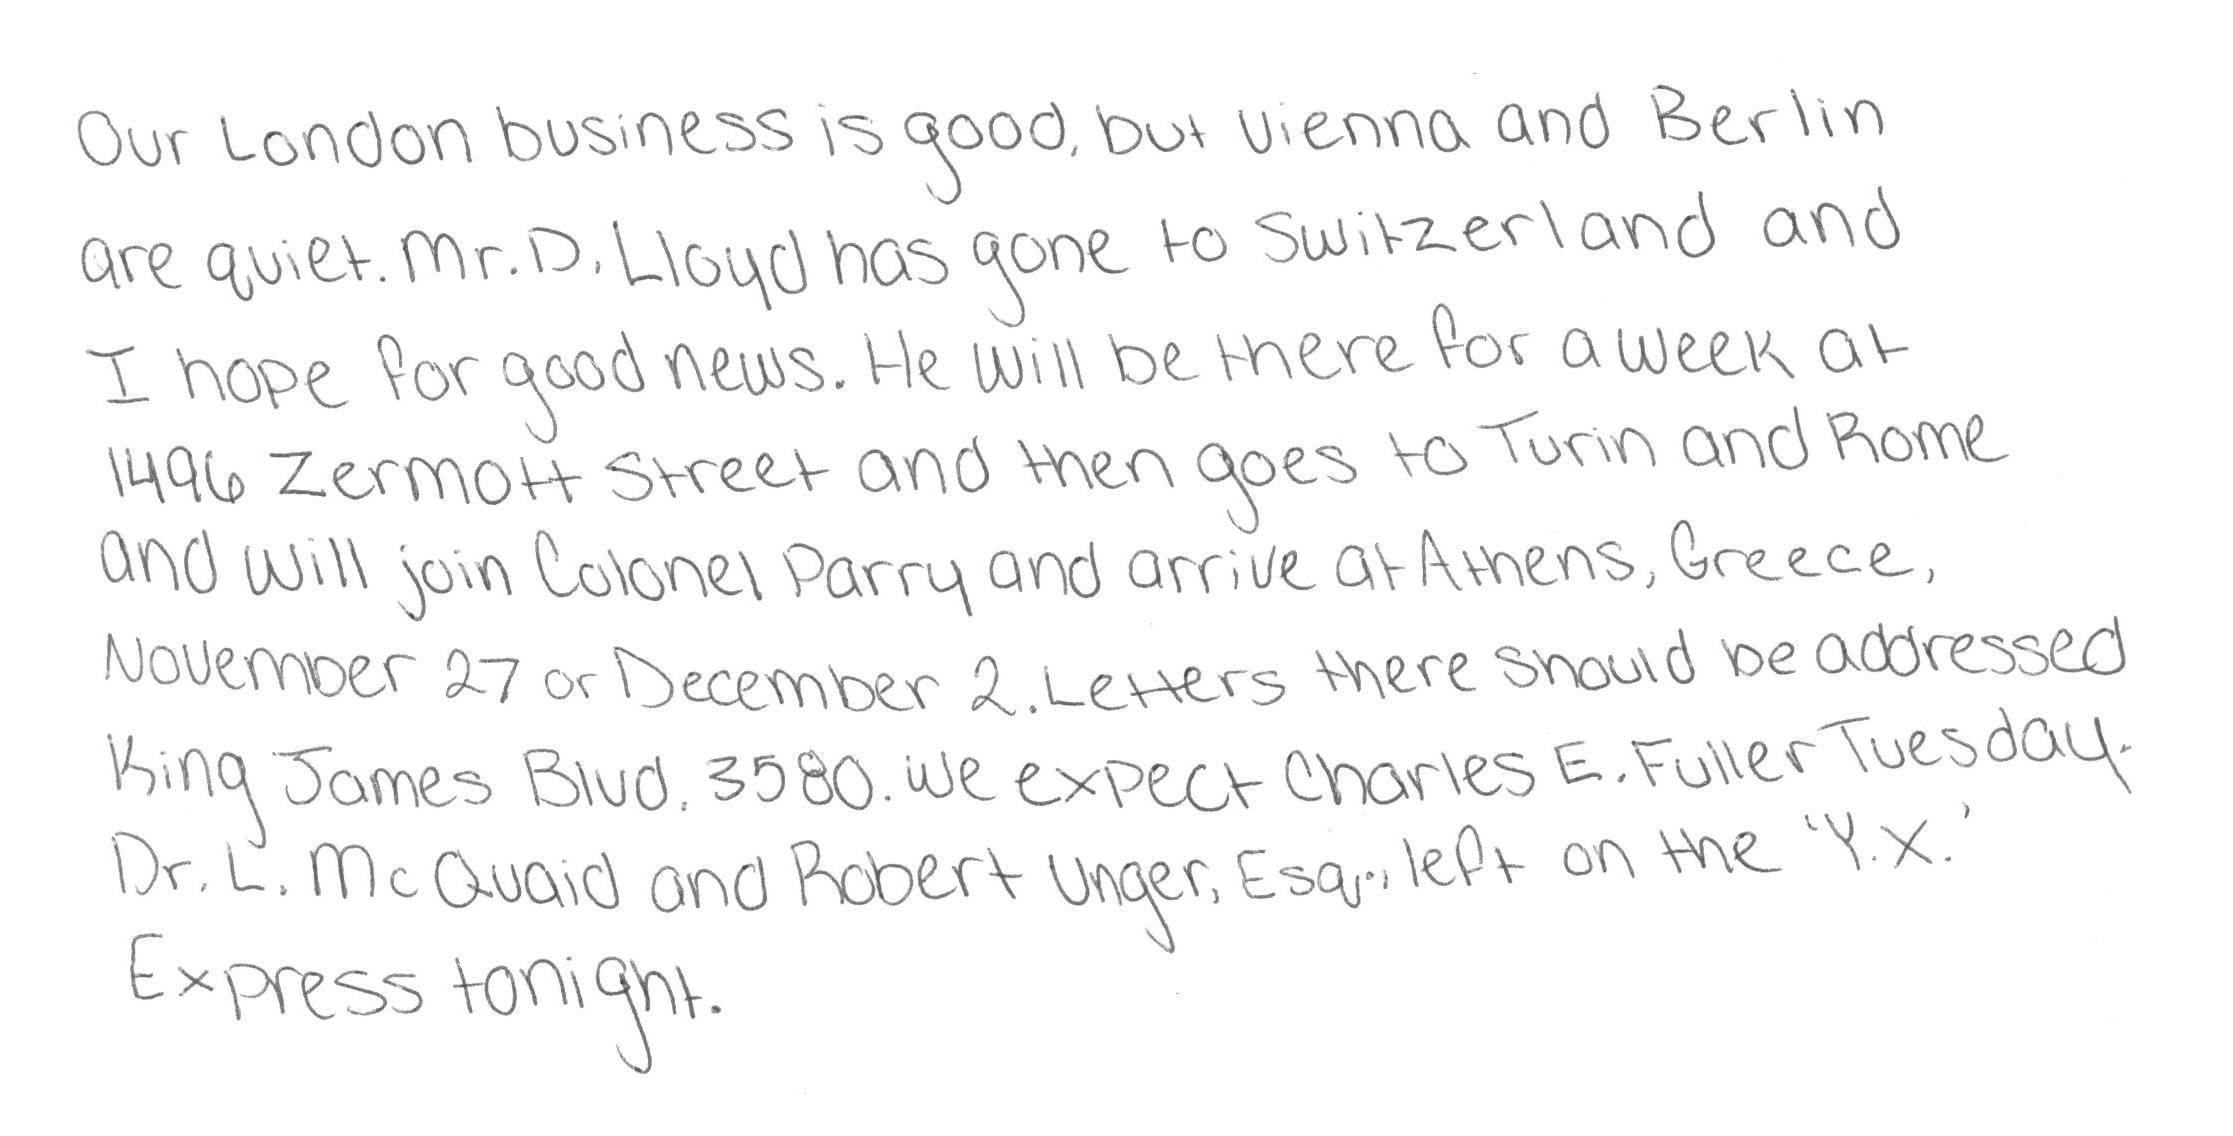 Our London business is good, but Vienna and Berlin
are quiet. Mr. D. Lloyd has gone to Switzerland and
I hope for good news. He will be there for a week at
1496 Zermott Street and then goes to Turin and Rome
and will join Colonel Parry and arrive at Athens, Greece,
November 27 or December 2. Letters there should be addressed
King James Blvd. 3580. We expect Charles E. Fuller Tuesday.
Dr. L. McQuaid and Robert Unger, Esq., left on the 'Y.X.'
Express tonight.